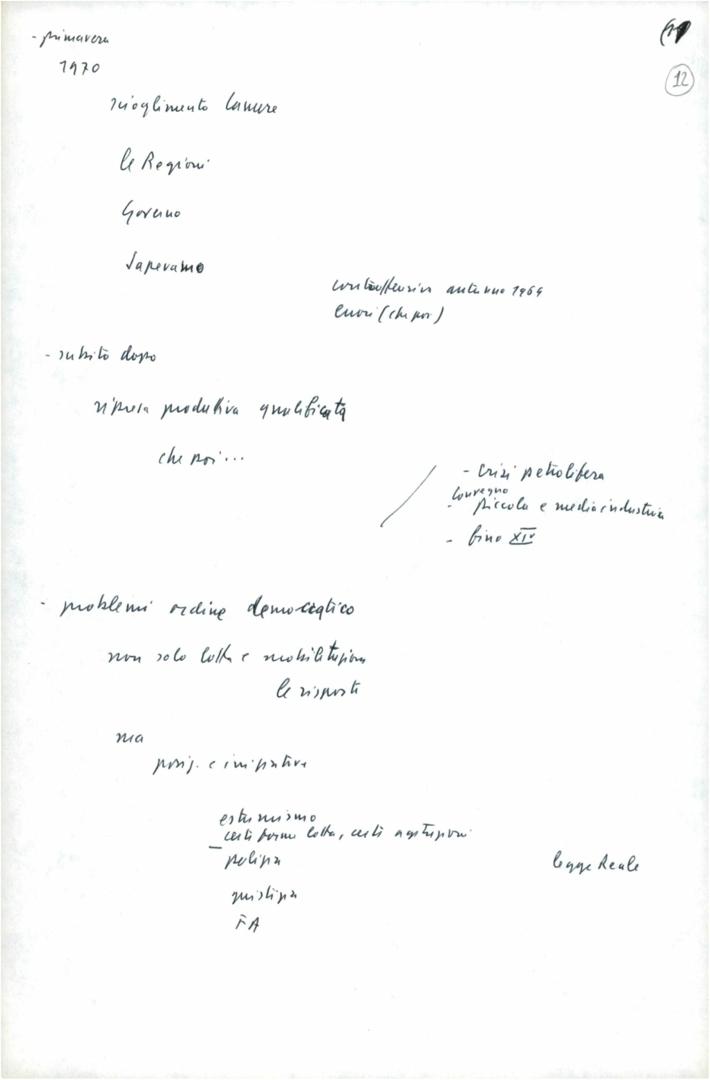 - primavera
12
1970
scioglimento Camere
le Regioni
Governo
Sapevamo
controffensiva autunno 1969
(che poi)
- subito dopo
ripresa produttiva qualificata
che poi...
- crisi petrolifera
convegno
- piccola e media industria
- fino XIV
- problemi ordine democratico
non solo lotta e mobilitazione
le risposte
ma
posiz. e iniziative
estremismo
certe forme lotta, certe agitazioni
- polizia
legge Reale
giustizia
FA